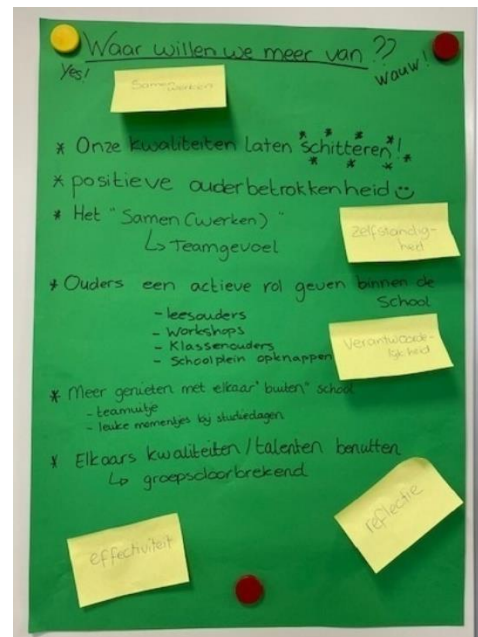 Waar willen we meer van ??
Yes!
wauw!
Samen
werken
* Onze kwaliteiten laten schitteren!
* positieve ouderbetrokkenheid
* Het "Samen (werken)"
↳ Teamgevoel
zelfstandig-
heid
* Ouders een actieve rol geven binnen de
School
- leesouders
- Workshops
- Klassenouders
- Schoolplein opknappen
Verantwoorde-
lijkheid
* Meer genieten met elkaar "buiten" school
- teamuitje
- leuke momentjes bij studiedagen
* Elkaars kwaliteiten / talenten benutten
↳ groepsdoorbrekend
reflectie
effectiviteit